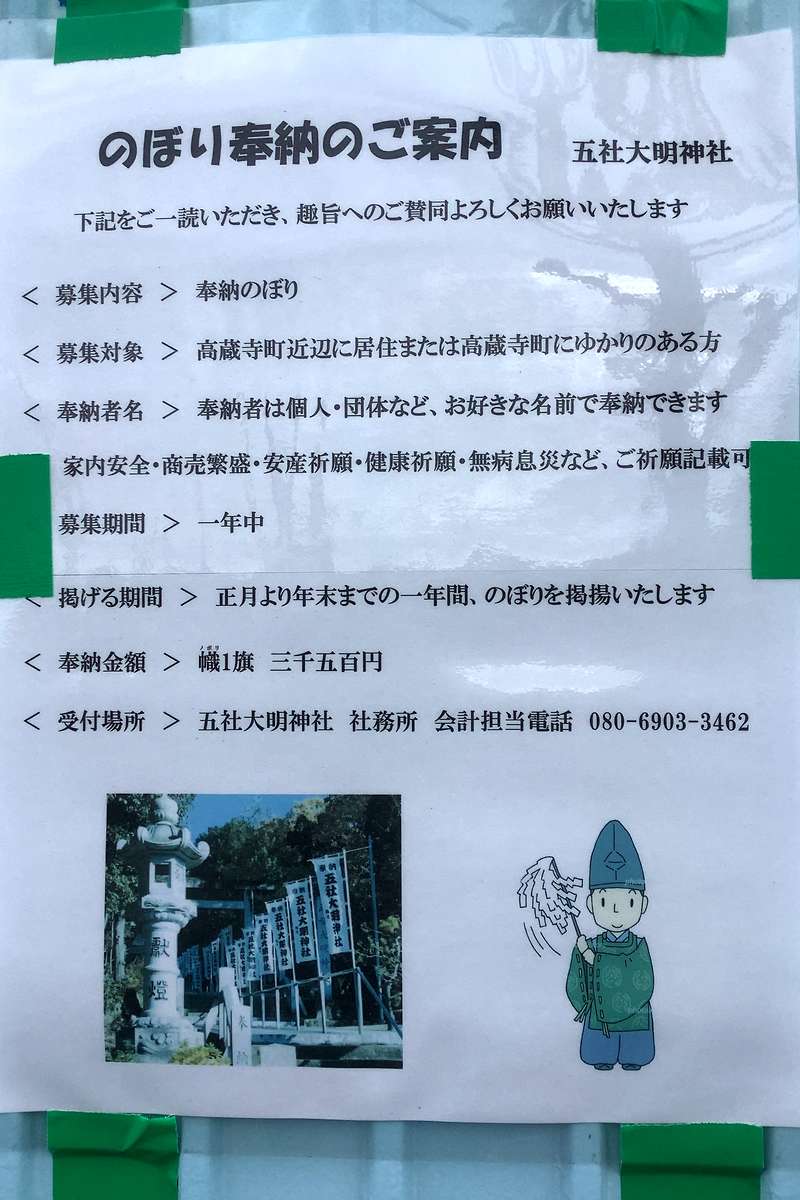 のぼり奉納のご案内 五社大明神社
下記をご一読いただき、趣旨へのご賛同よろしくお願いいたします
＜ 募集内容 ＞ 奉納のぼり
＜ 募集対象 ＞ 高蔵寺町近辺に居住または高蔵寺町にゆかりのある方
＜ 奉納者名 ＞ 奉納者は個人・団体など、お好きな名前で奉納できます
家内安全・商売繁盛・安産祈願・健康祈願・無病息災など、ご祈願記載可
募集期間 ＞ 一年中
＜ 掲げる期間 ＞ 正月より年末までの一年間、のぼりを掲揚いたします
ノボリ
＜ 奉納金額 ＞ 幟1旗 三千五百円
＜ 受付場所 ＞ 五社大明神社 社務所 会計担当電話 080-6903-3462
奉納 五社大明神社
五社大明神社
五社大明神社
献燈
奉